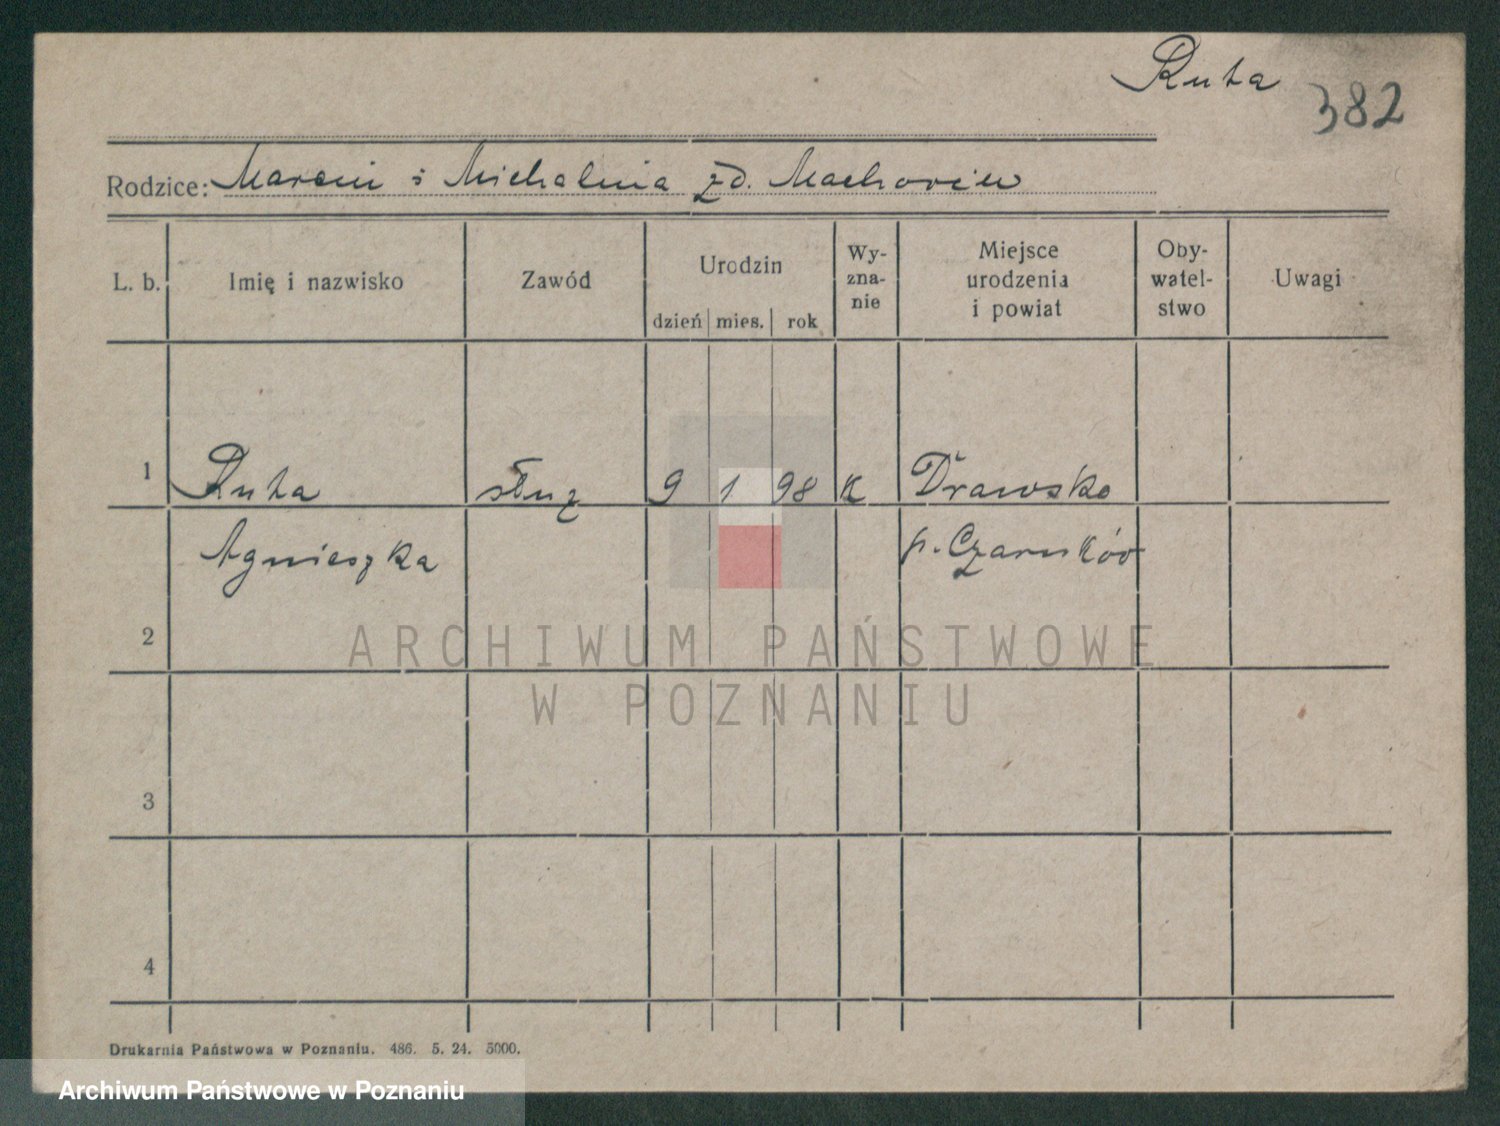 Ruta
382
Rodzice: Marcin i Michalina zd.
L. b. Imię i nazwisko Zawód Urodzin dzień mies. rok Wy-zna-nie Miejsce urodzenia i powiat Oby-watel-stwo Uwagi
1 Ruta służ 9 1 98 K Drawsko
Agnieszka p. Czarnków
2
ARCHIWUM PAŃSTWOWE
W POZNANIU
3
4
Drukarnia Państwowa w Poznaniu. 486. 5. 24. 5000.
Archiwum Państwowe w Poznaniu